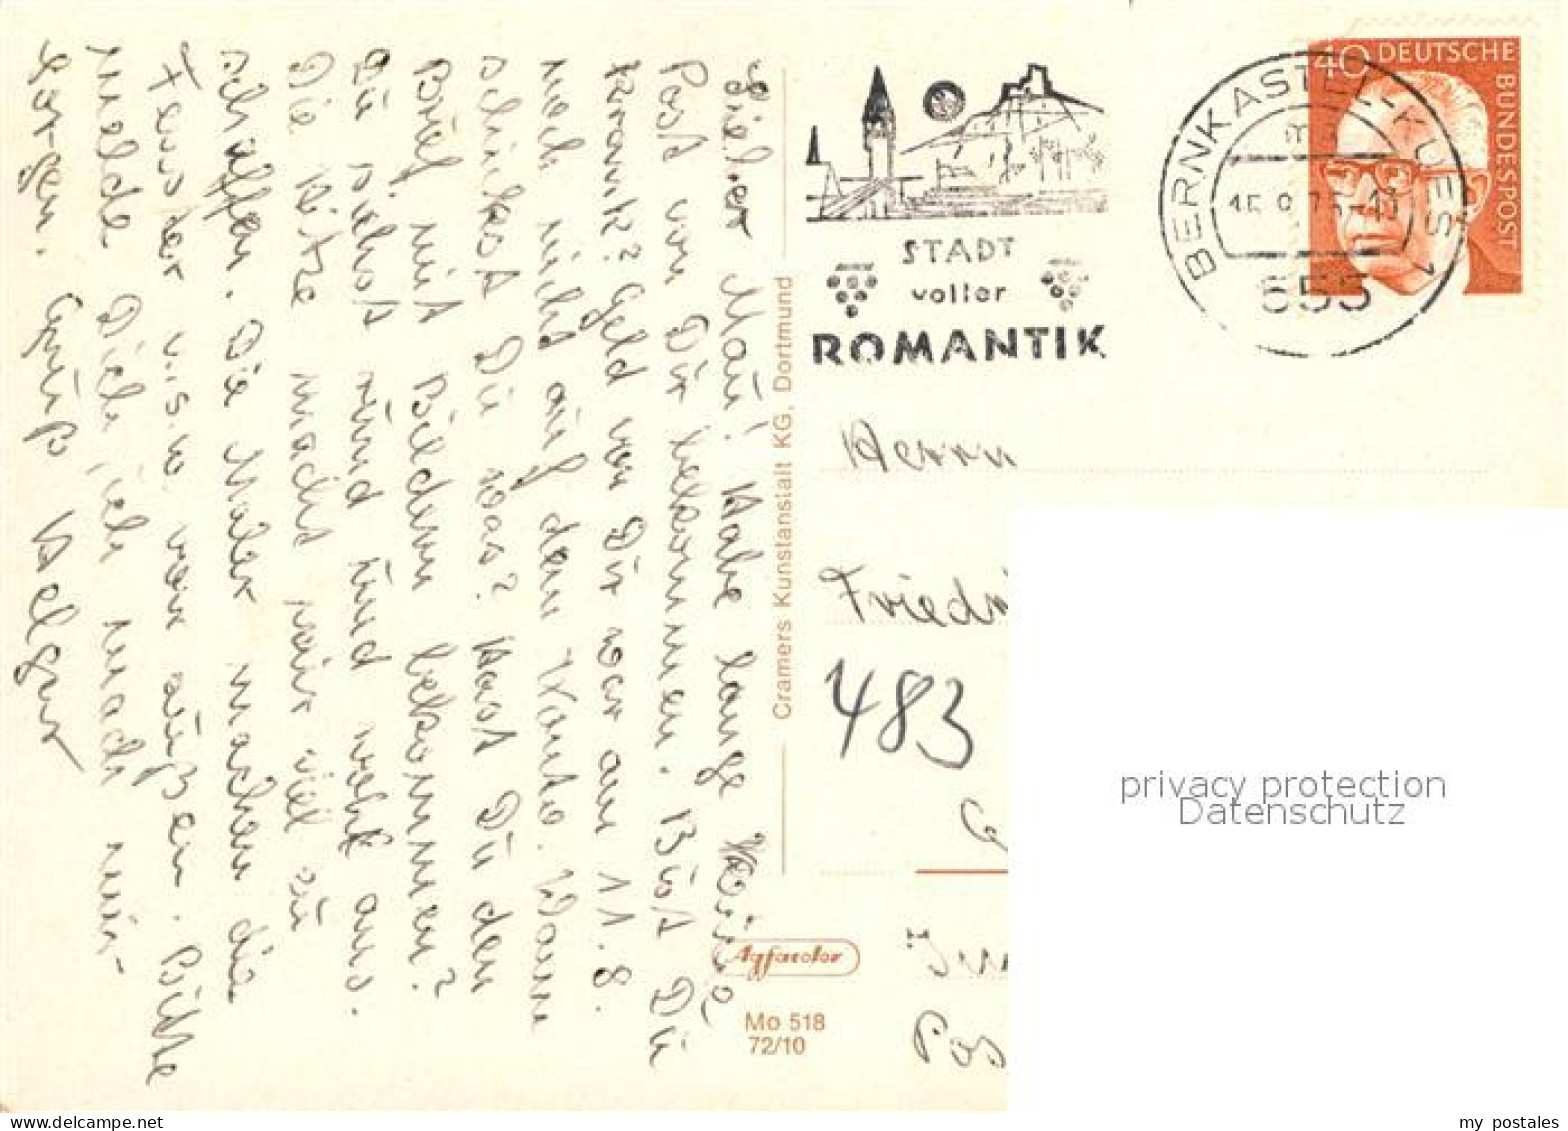 Lieber Mau! Habe lange keine
Post von Dir bekommen. Bist Du
krank? Geld von Dir war am 11.8.
noch nicht auf dem Konto. Wann
schickst Du was? Hast Du den
Brief mit Bildern bekommen?
Du siehst rund und nett aus.
Die Hitze macht mir viel zu
schaffen. Die Maler machen die
Fenster u.s.w. von außen. Bitte
melde Dich, ich mach mir
Sorgen. Gruß Helgur
Cramers Kunstanstalt KG, Dortmund
Agfacolor
Mo 518
72/10
STADT
voller
ROMANTIK
BERNKASTEL-KUES 1
m
15.8.75-18
555
40 DEUTSCHE
BUNDESPOST
Herrn
Friedri
483
G
Pos
privacy protection
Datenschutz
my postales